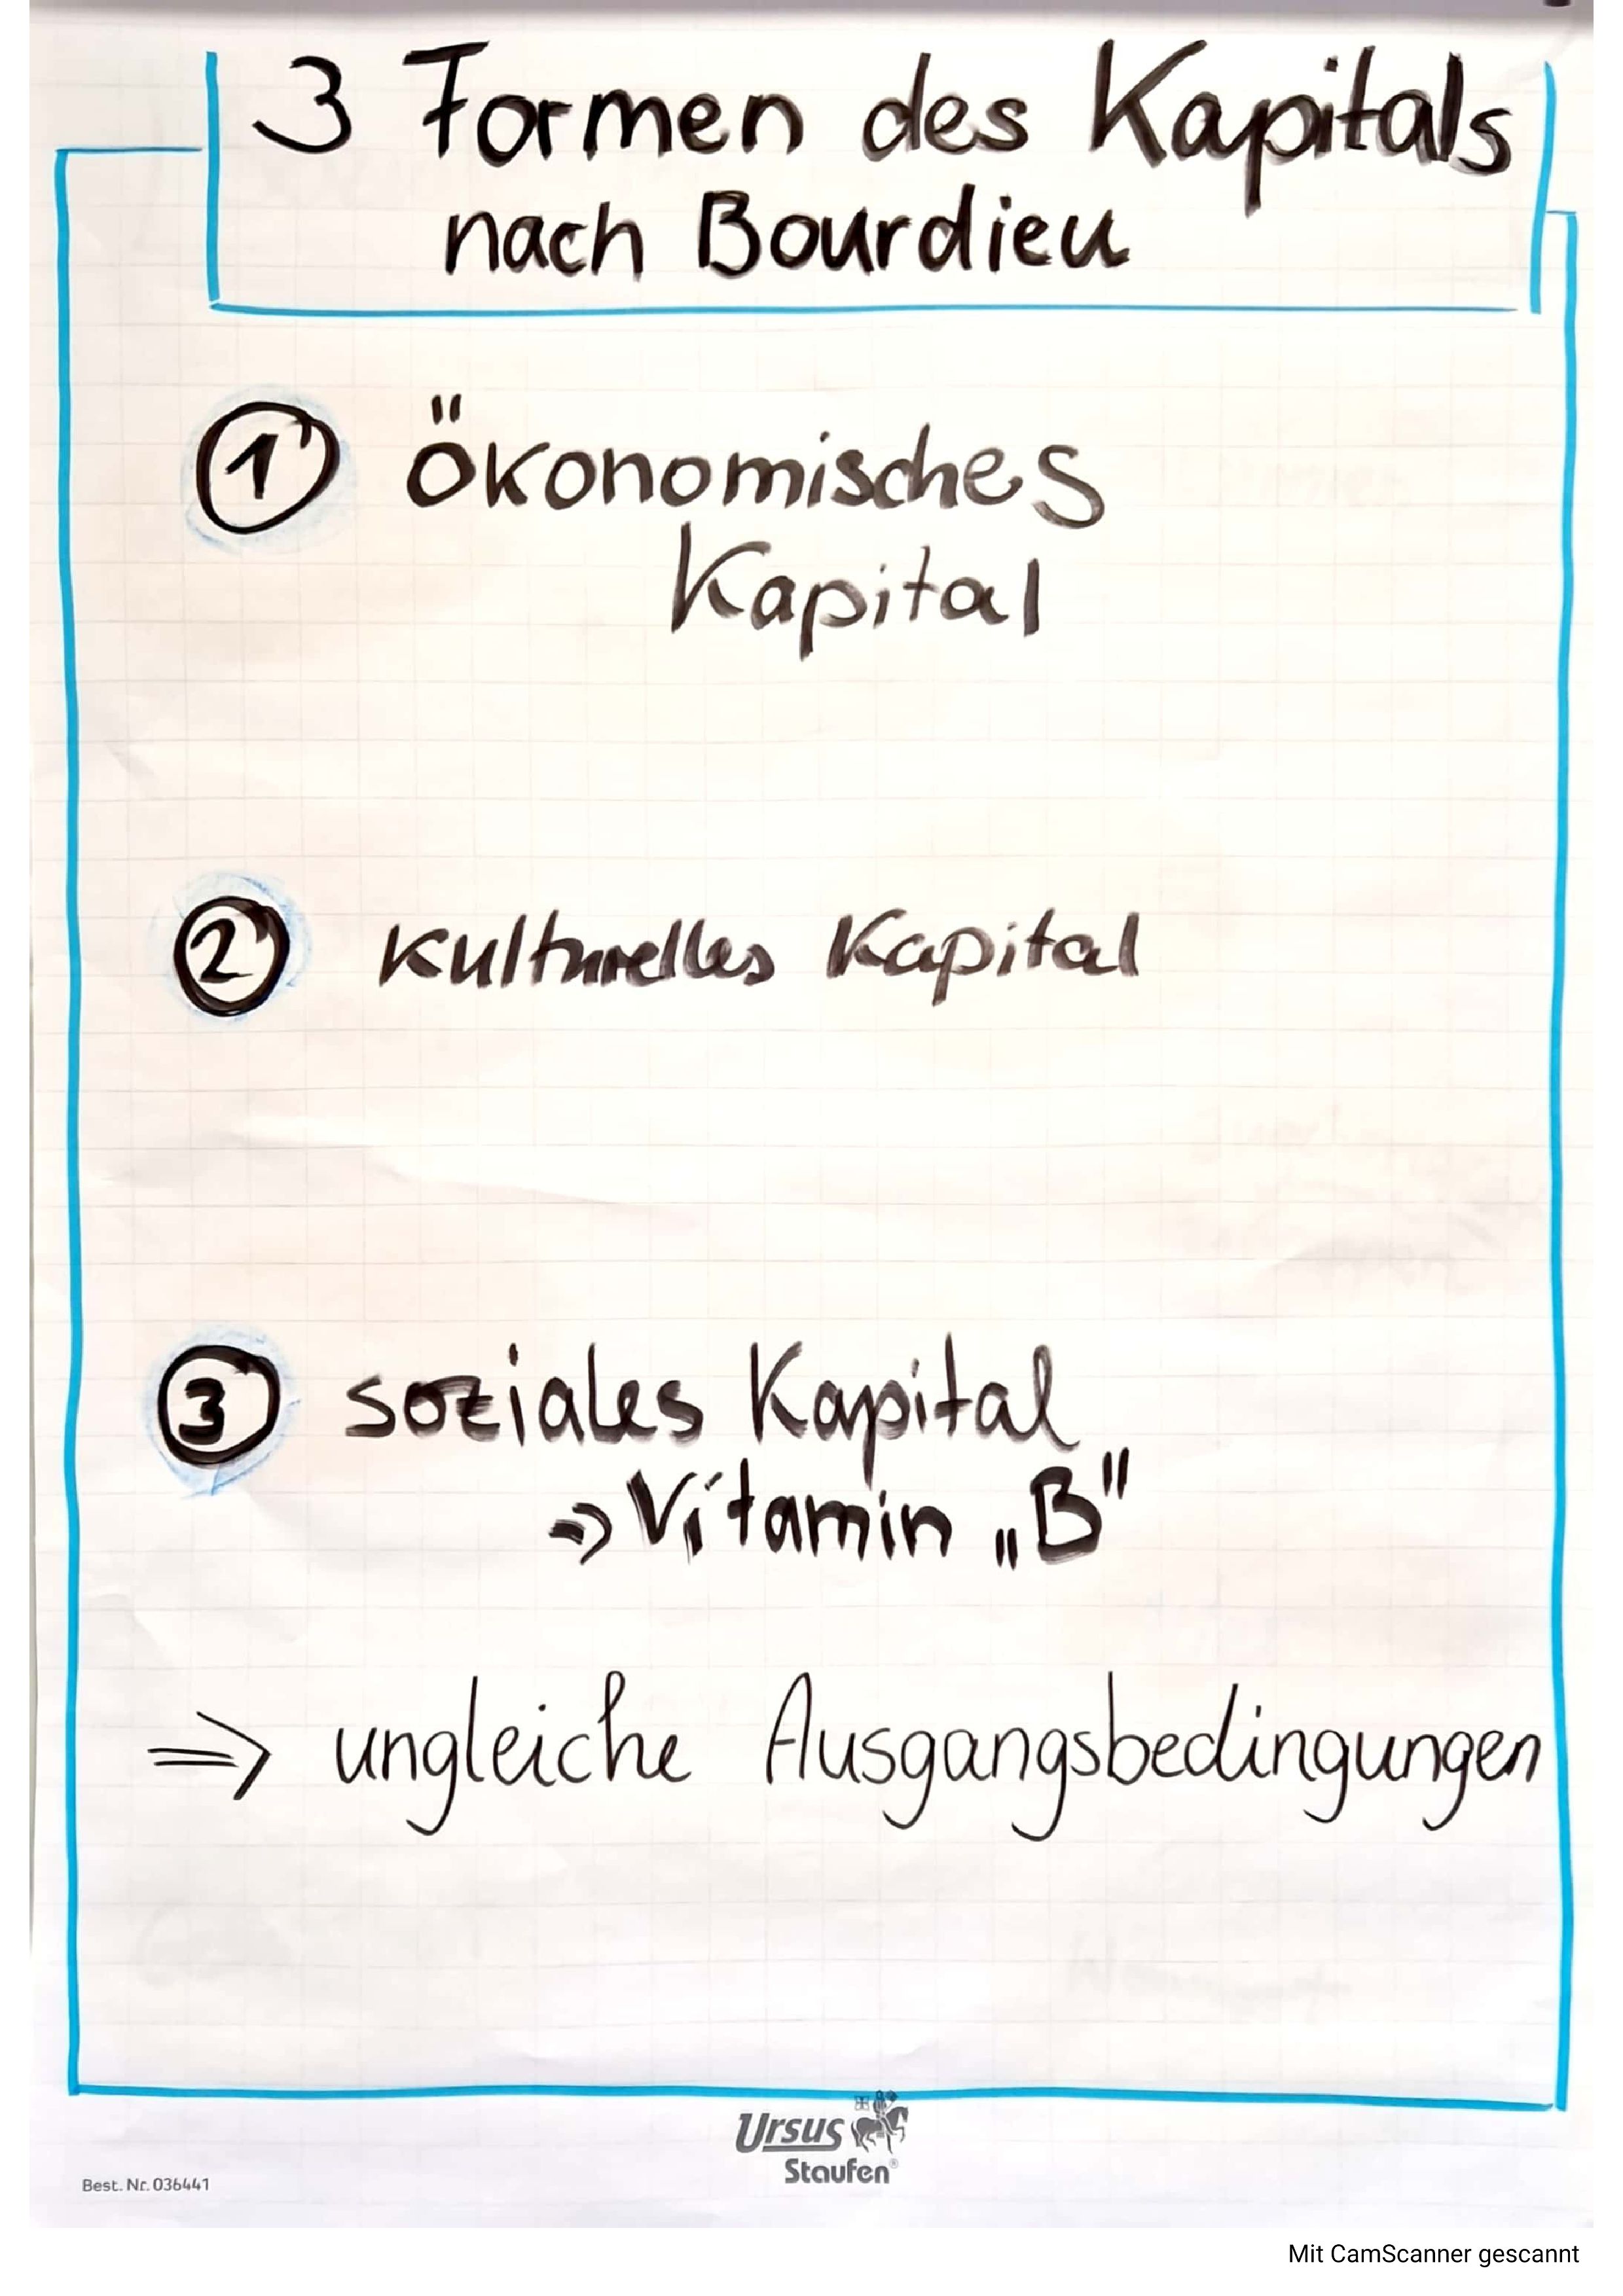 3 Formen des Kapitals
nach Bourdieu
1 Ökonomisches
Kapital
2 Kulturelles Kapital
3 soziales Kapital
⇒ Vitamin „B"
⇒ ungleiche Ausgangsbedingungen
Ursus
Staufen®
Best. Nr. 036441
Mit CamScanner gescannt